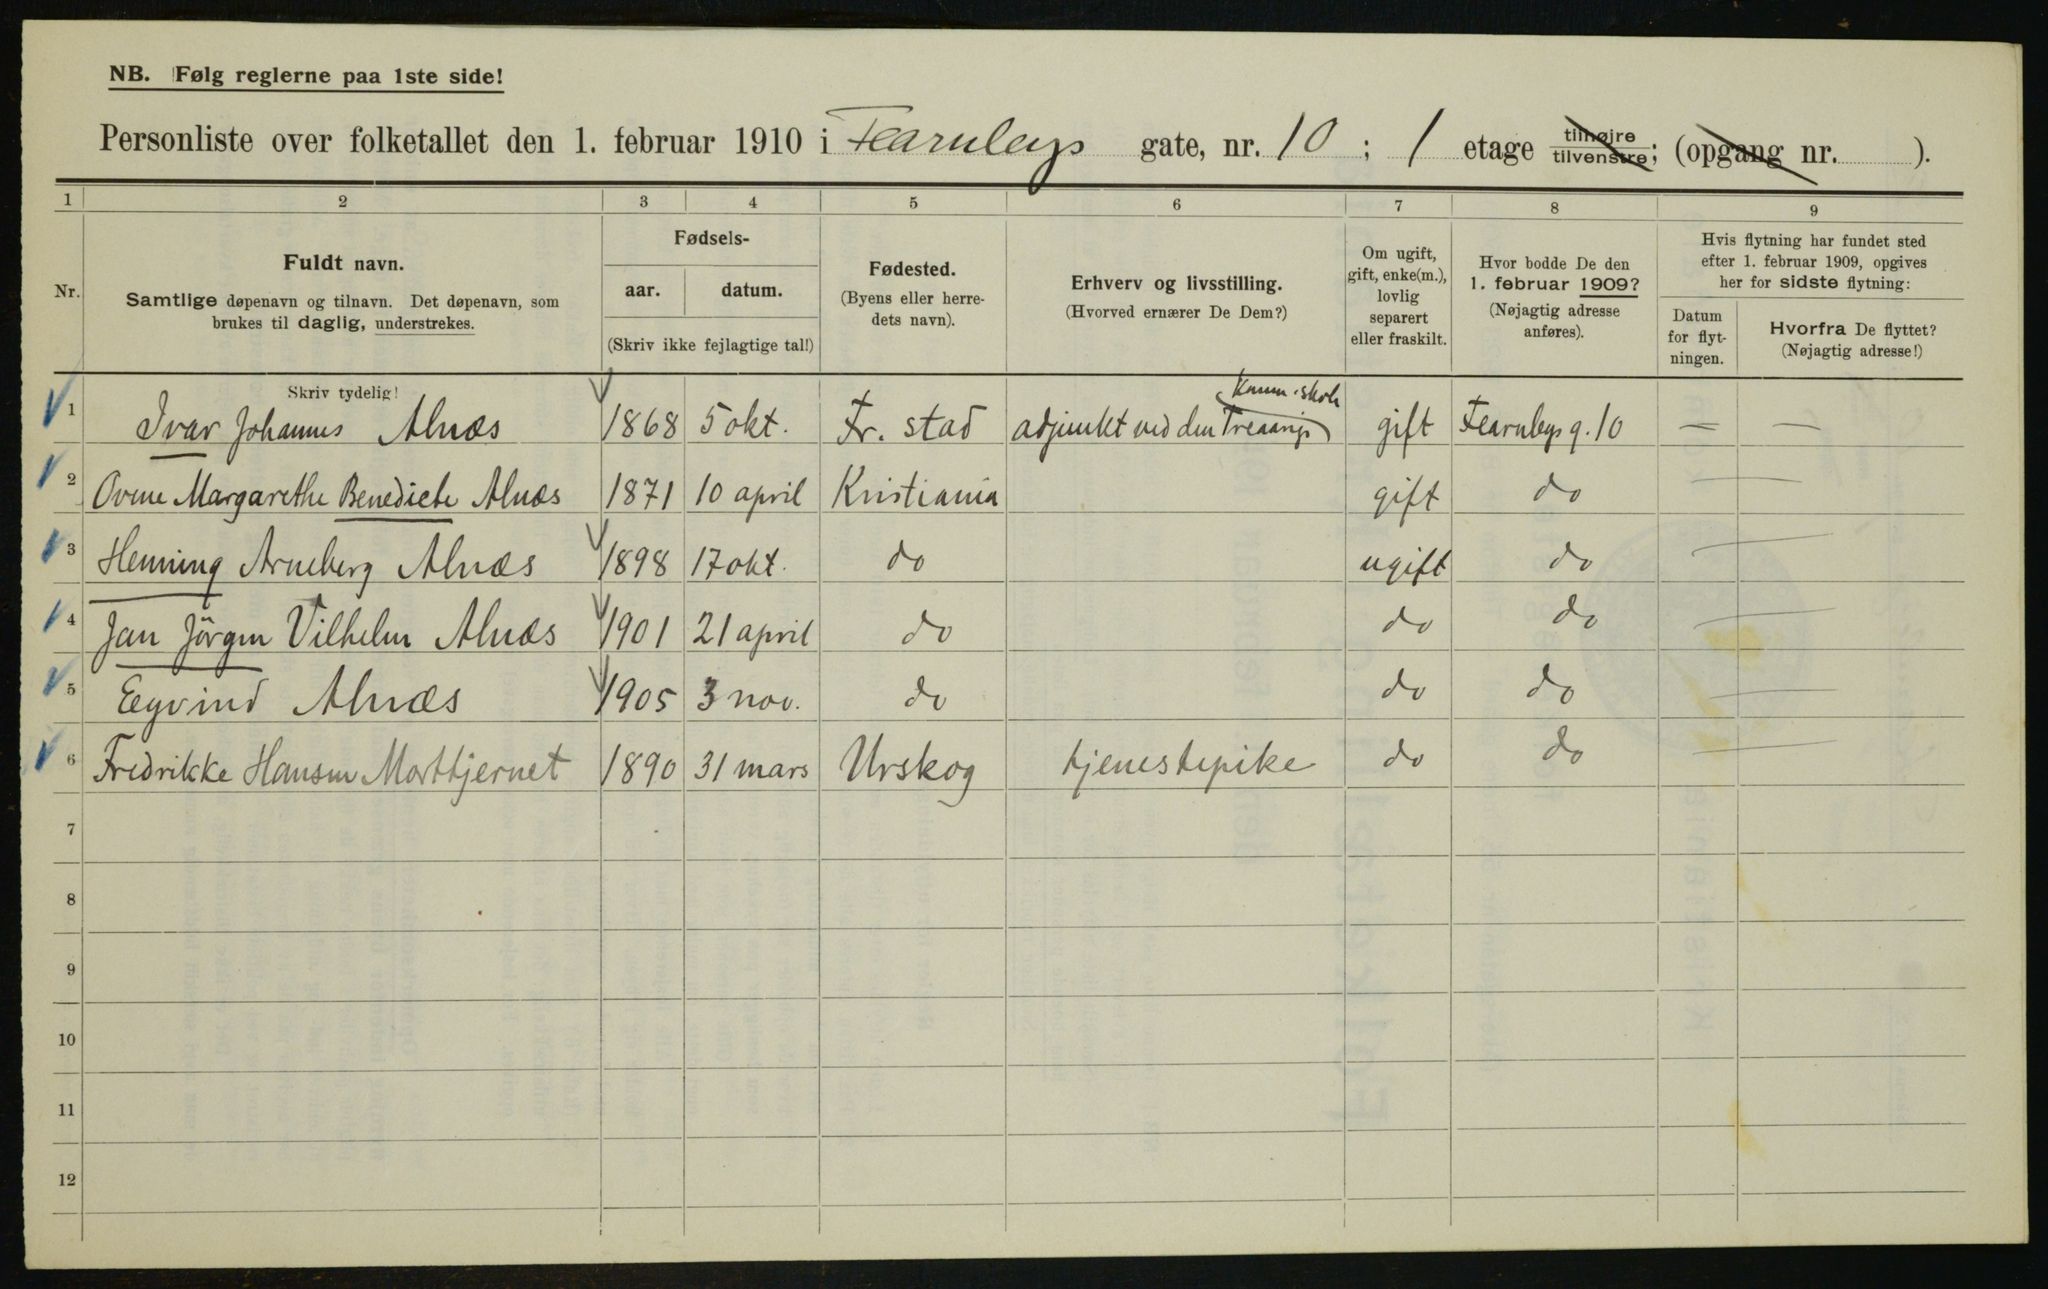 NB. Følg reglerne paa 1ste side!
Personliste over folketallet den 1. februar 1910 i Fearnleys gate, nr. 10 ; 1 etage tilhøjre tilvenstre; (opgang nr. ).
1 2 3 4 5 6 7 8 9
Nr.
Fuldt navn.
Samtlige døpenavn og tilnavn. Det døpenavn, som
brukes til daglig, understrekes.
Fødsels-
aar. datum.
(Skriv ikke fejlagtige tal!)
Fødested.
(Byens eller herre-
dets navn).
Erhverv og livsstilling.
(Hvorved ernærer De Dem?)
Om ugift,
gift, enke(m.),
lovlig
separert
eller fraskilt.
Hvor bodde De den
1. februar 1909?
(Nøjagtig adresse
anføres).
Hvis flytning har fundet sted
efter 1. februar 1909, opgives
her for sidste flytning:
Datum
for flyt-
ningen.
Hvorfra De flyttet?
(Nøjagtig adresse!)
Skriv tydelig!
1 Ivar Johannes Alnæs 1868 5 okt. Fr. stad adjunkt ved den Treaarige gift Fearnleys g. 10 — —
2 Ovine Margarethe Benedicte Alnæs 1871 10 april Kristiania gift do —
3 Henning Arneberg Alnæs 1898 17 okt. do ugift do —
4 Jan Jörgen Vilhelm Alnæs 1901 21 april do do do —
5 Eyvind Alnæs 1905 3 nov. do do do —
6 Fredrikke Hansen Morttjernet 1890 31 mars Urskog tjenestepike do do —
7
8
9
10
11
12